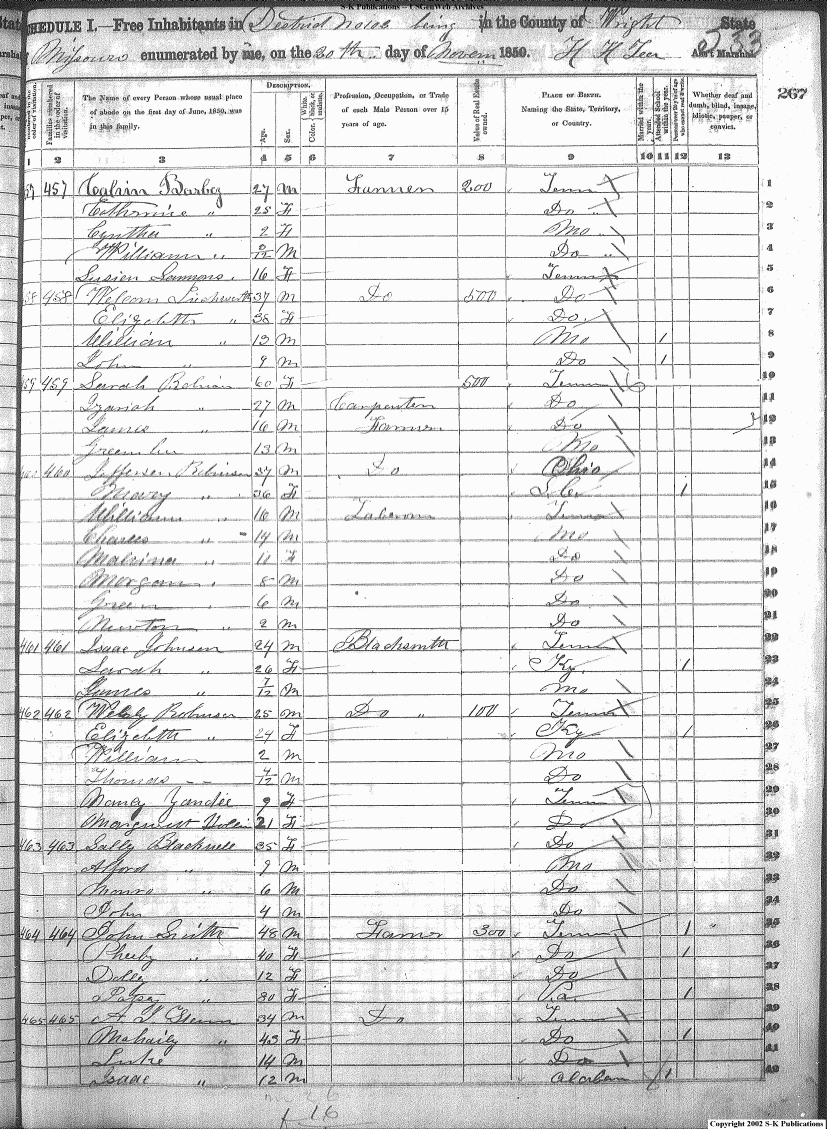 S-K Publications - USGenWeb Archives
SCHEDULE I.—Free Inhabitants in District No 106 being in the County of Wright State
Missouri enumerated by me, on the 20th day of Novem 1850. H H Ass't Marshal. 533
267
DESCRIPTION.
The Name of every Person whose usual place of abode on the first day of June, 1850, was in this family.
Age. Sex. White, black, or mulatto. Color,
Profession, Occupation, or Trade of each Male Person over 15 years of age.
Value of Real Estate owned.
PLACE OF BIRTH. Naming the State, Territory, or Country.
Married within the year. Attended School within the year. Persons over 20 y'rs of age who cannot read & write.
Whether deaf and dumb, blind, insane, idiotic, pauper, or convict.
1 2 3 4 5 6 7 8 9 10 11 12 13
457 457 Calvin Barbey 27 M Farmer 200 Tenn 1
Catharine " 25 F Do " 2
Cynthia " 2 F Mo " 3
William " /12 M Do " 4
Lusien Sammons 16 F Tenn 5
458 458 Welcom 37 M Do 500 Do 6
Elizabeth " 38 F Do 7
William " 13 M Mo 1 8
John " 9 M Do 1 9
459 459 Sarah 60 F 500 Tenn 10
" 27 M Carpenter Do 11
James " 16 M Farmer Do 12
Green 13 M Mo 13
460 Jefferson Robinson 37 M Do Ohio 14
Mary " 36 F 1 15
William " 16 M Laborer Tenn 16
Charles " 14 M Mo 17
Malvina " 11 F Do 18
Morgan " 8 M Do 19
Green " 6 M Do 20
Newton " 2 M Do 21
461 461 Isaac Johnson 24 M Blacksmith Tenn 22
Sarah " 26 F Ky 1 23
James " 7/12 M Mo 24
462 462 Robinson 25 M Do " 100 Tenn 25
Elizabeth " 24 F Ky 1 26
William 2 M Mo 27
Thomas 4/12 M Do 28
Nancy Yandle 9 F Tenn 29
Margaret 21 F Do 30
463 463 Sally Blackwell 35 F Do 31
Alford " 9 M Mo 32
Monro " 6 M Do 33
John 4 M Do 34
464 464 John Smith 48 M Farmer 300 Tenn 1 " 35
Pheeby " 40 F Do 1 36
Dolly " 12 F Do 37
" 80 F Va 1 38
465 465 A 34 M Do Tenn 39
Mahaily " 43 F Do 1 40
Luke 14 M Do 41
Isaac " 12 M Alabam 1 42
26
16
Copyright 2002 S-K Publications